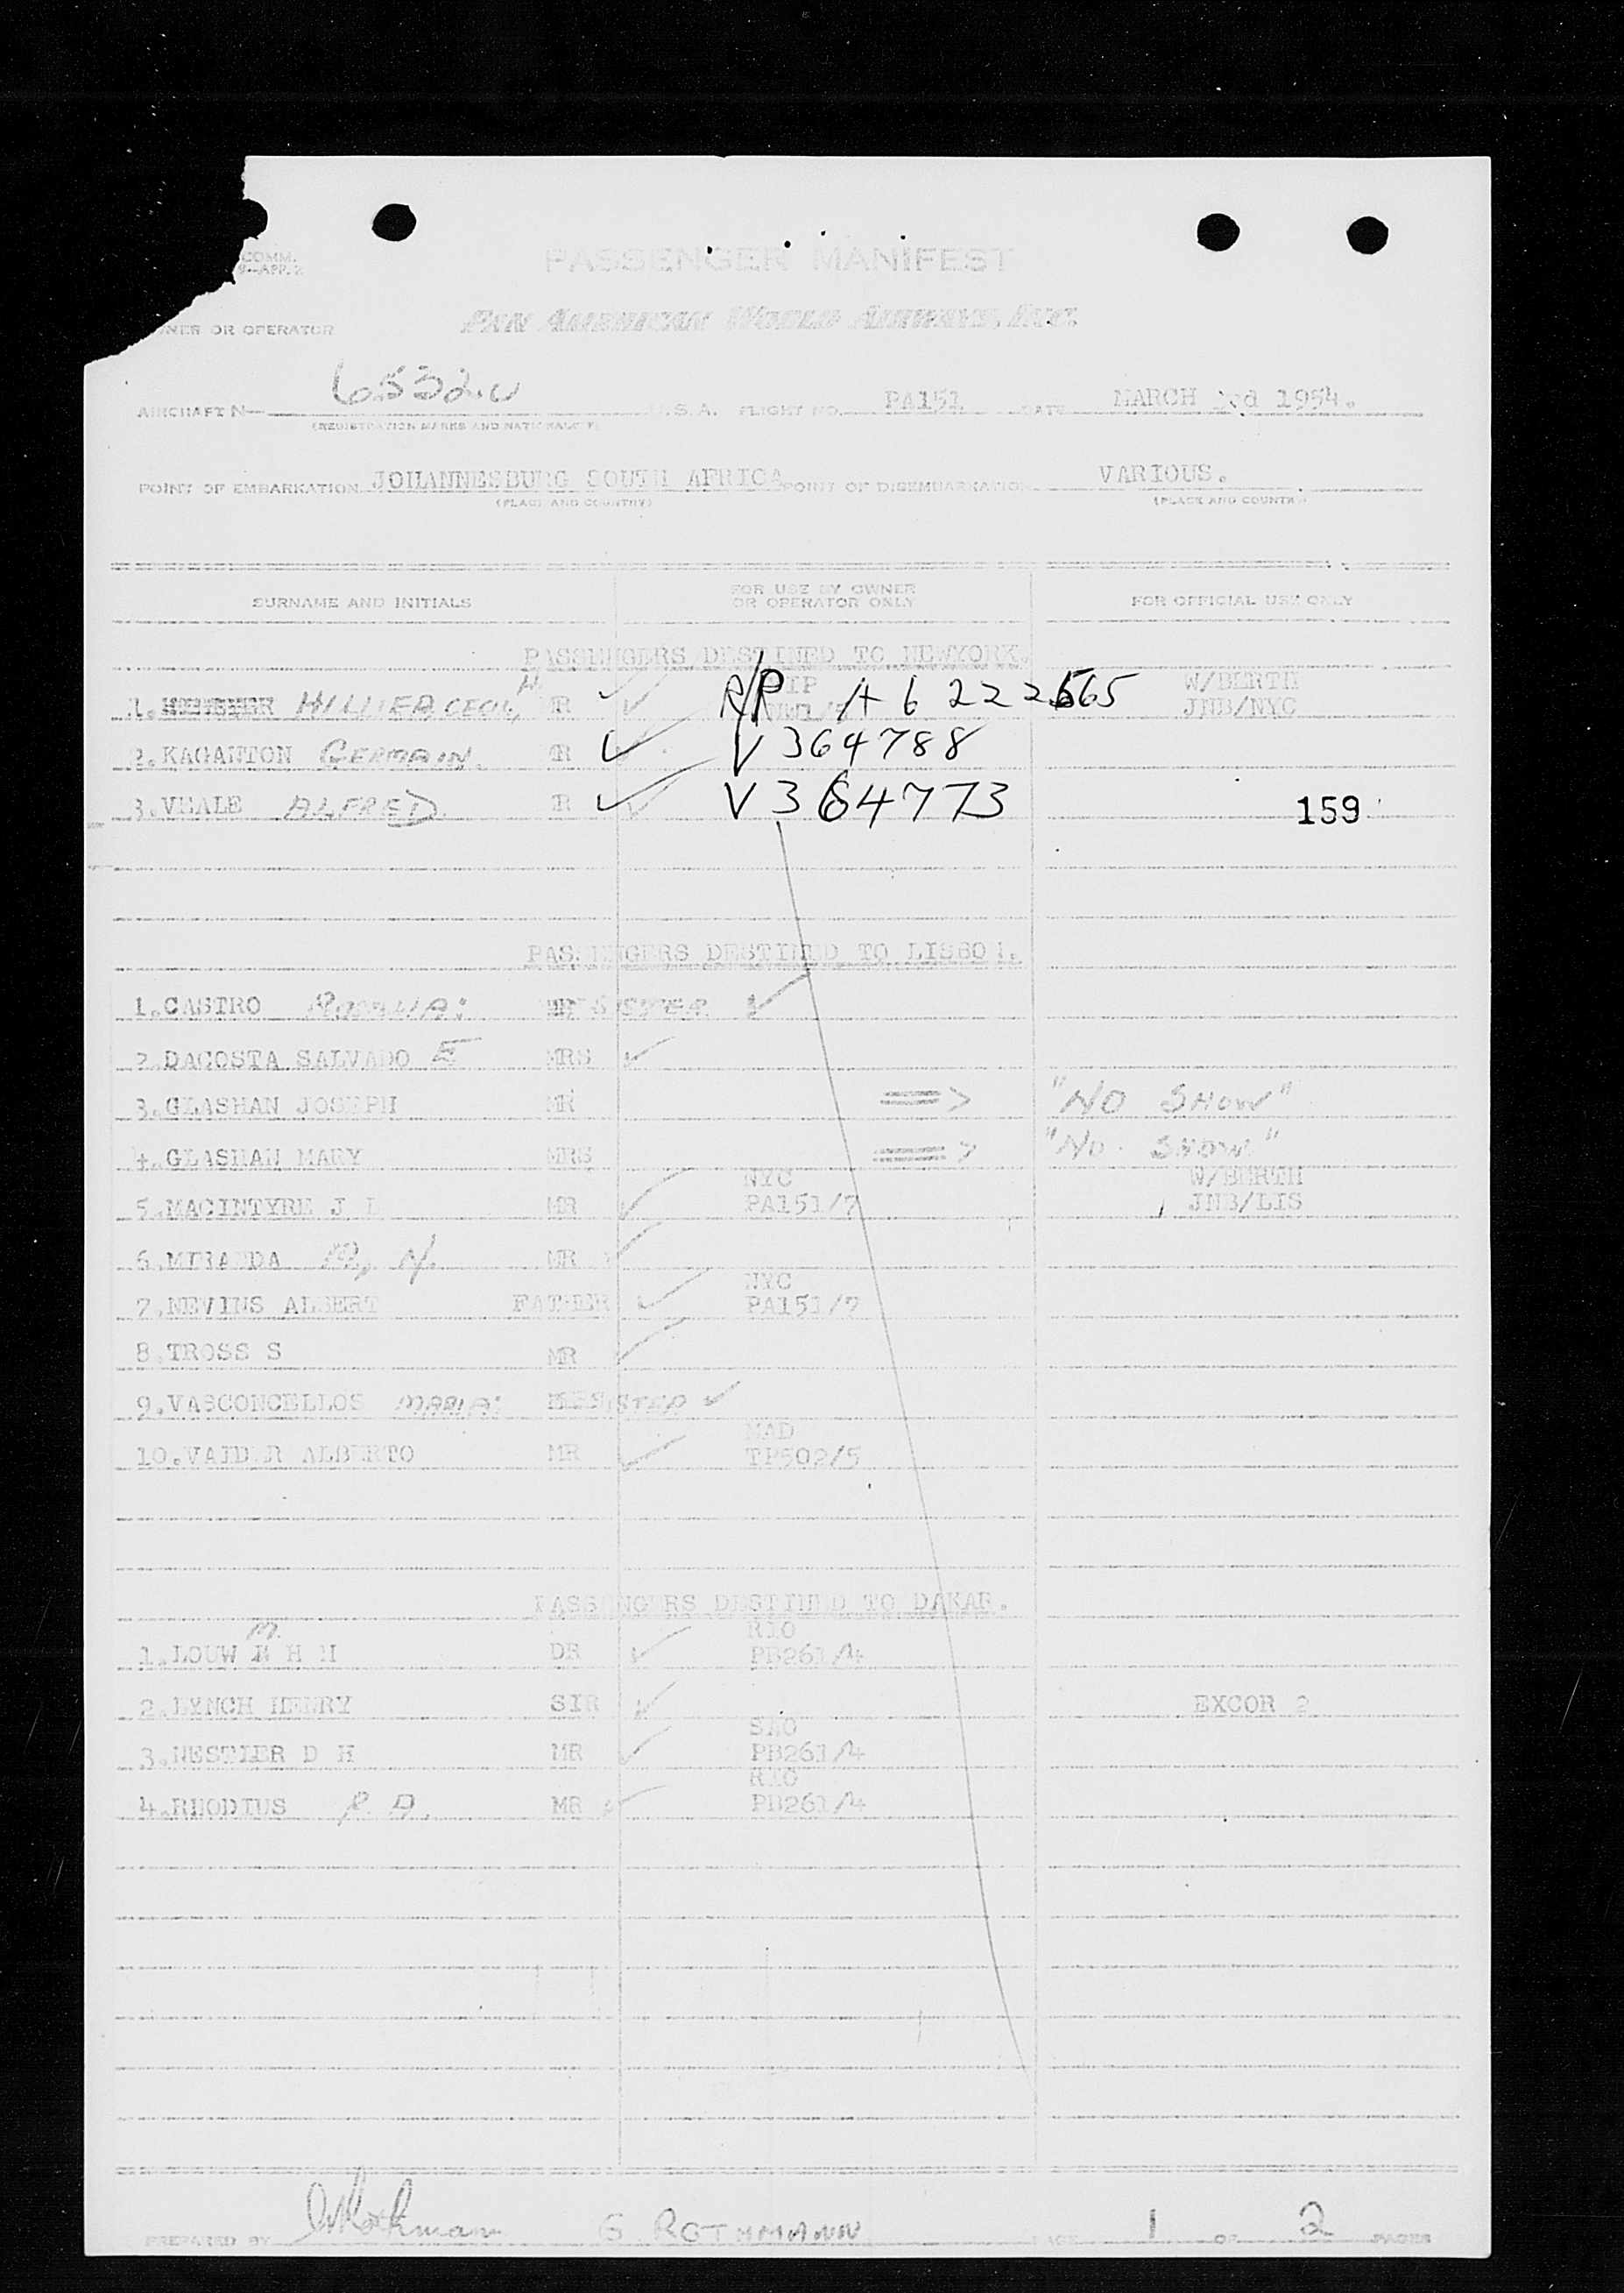 COMM.
9—APP. 2
PASSENGER MANIFEST
OWNER OR OPERATOR PAN AMERICAN WORLD AIRWAYS, INC.
AIRCRAFT N— 6532.U U.S.A. FLIGHT NO. PA151 DATE MARCH 1954.
(REGISTRATION MARKS AND NATIONALITY)
POINT OF EMBARKATION JOHANNESBURG SOUTH AFRICA POINT OF DISEMBARKATION VARIOUS.
(PLACE AND COUNTRY) (PLACE AND COUNTRY)
SURNAME AND INITIALS FOR USE BY OWNER OR OPERATOR ONLY FOR OFFICIAL USE ONLY
PASSENGERS DESTINED TO NEWYORK.
W/BERTH
1. HILLIER CECIL H. MR ✓ R/P A 6 222565 JNB/NYC
2. KAGANTON GERMAIN. MR ✓ V 364788
3. VEALE ALFRED MR ✓ V 364773 159
PASSENGERS DESTINED TO LISBON.
1. CASTRO SISTER ✓
2. DACOSTA SALVADO E MRS ✓
3. GLASHAN JOSEPH MR ==> "NO SHOW"
4. GLASHAN MARY MRS ==> "NO SHOW"
NYC W/BERTH
5. MACINTYRE J MR ✓ PA151/7 JNB/LIS
6. MIRANDA N. MR ✓
NYC
7. NEVINS ALBERT FATHER ✓ PA151/7
8. TROSS S MR ✓
9. VASCONCELLOS MARIA SISTER ✓
MAD
10. ALBERTO MR ✓ TP502/5
PASSENGERS DESTINED TO DAKAR.
M. RIO
1. LOUW E H H DR ✓ PB261/4
2. LYNCH HENRY SIR ✓ EXCOR 2
SAO
3. NESTLER D H MR ✓ PB261/4
RIO
4. RHODIUS R. A. MR ✓ PB261/4
PREPARED BY G ROTHMANN PAGE 1 OF 2 PAGES